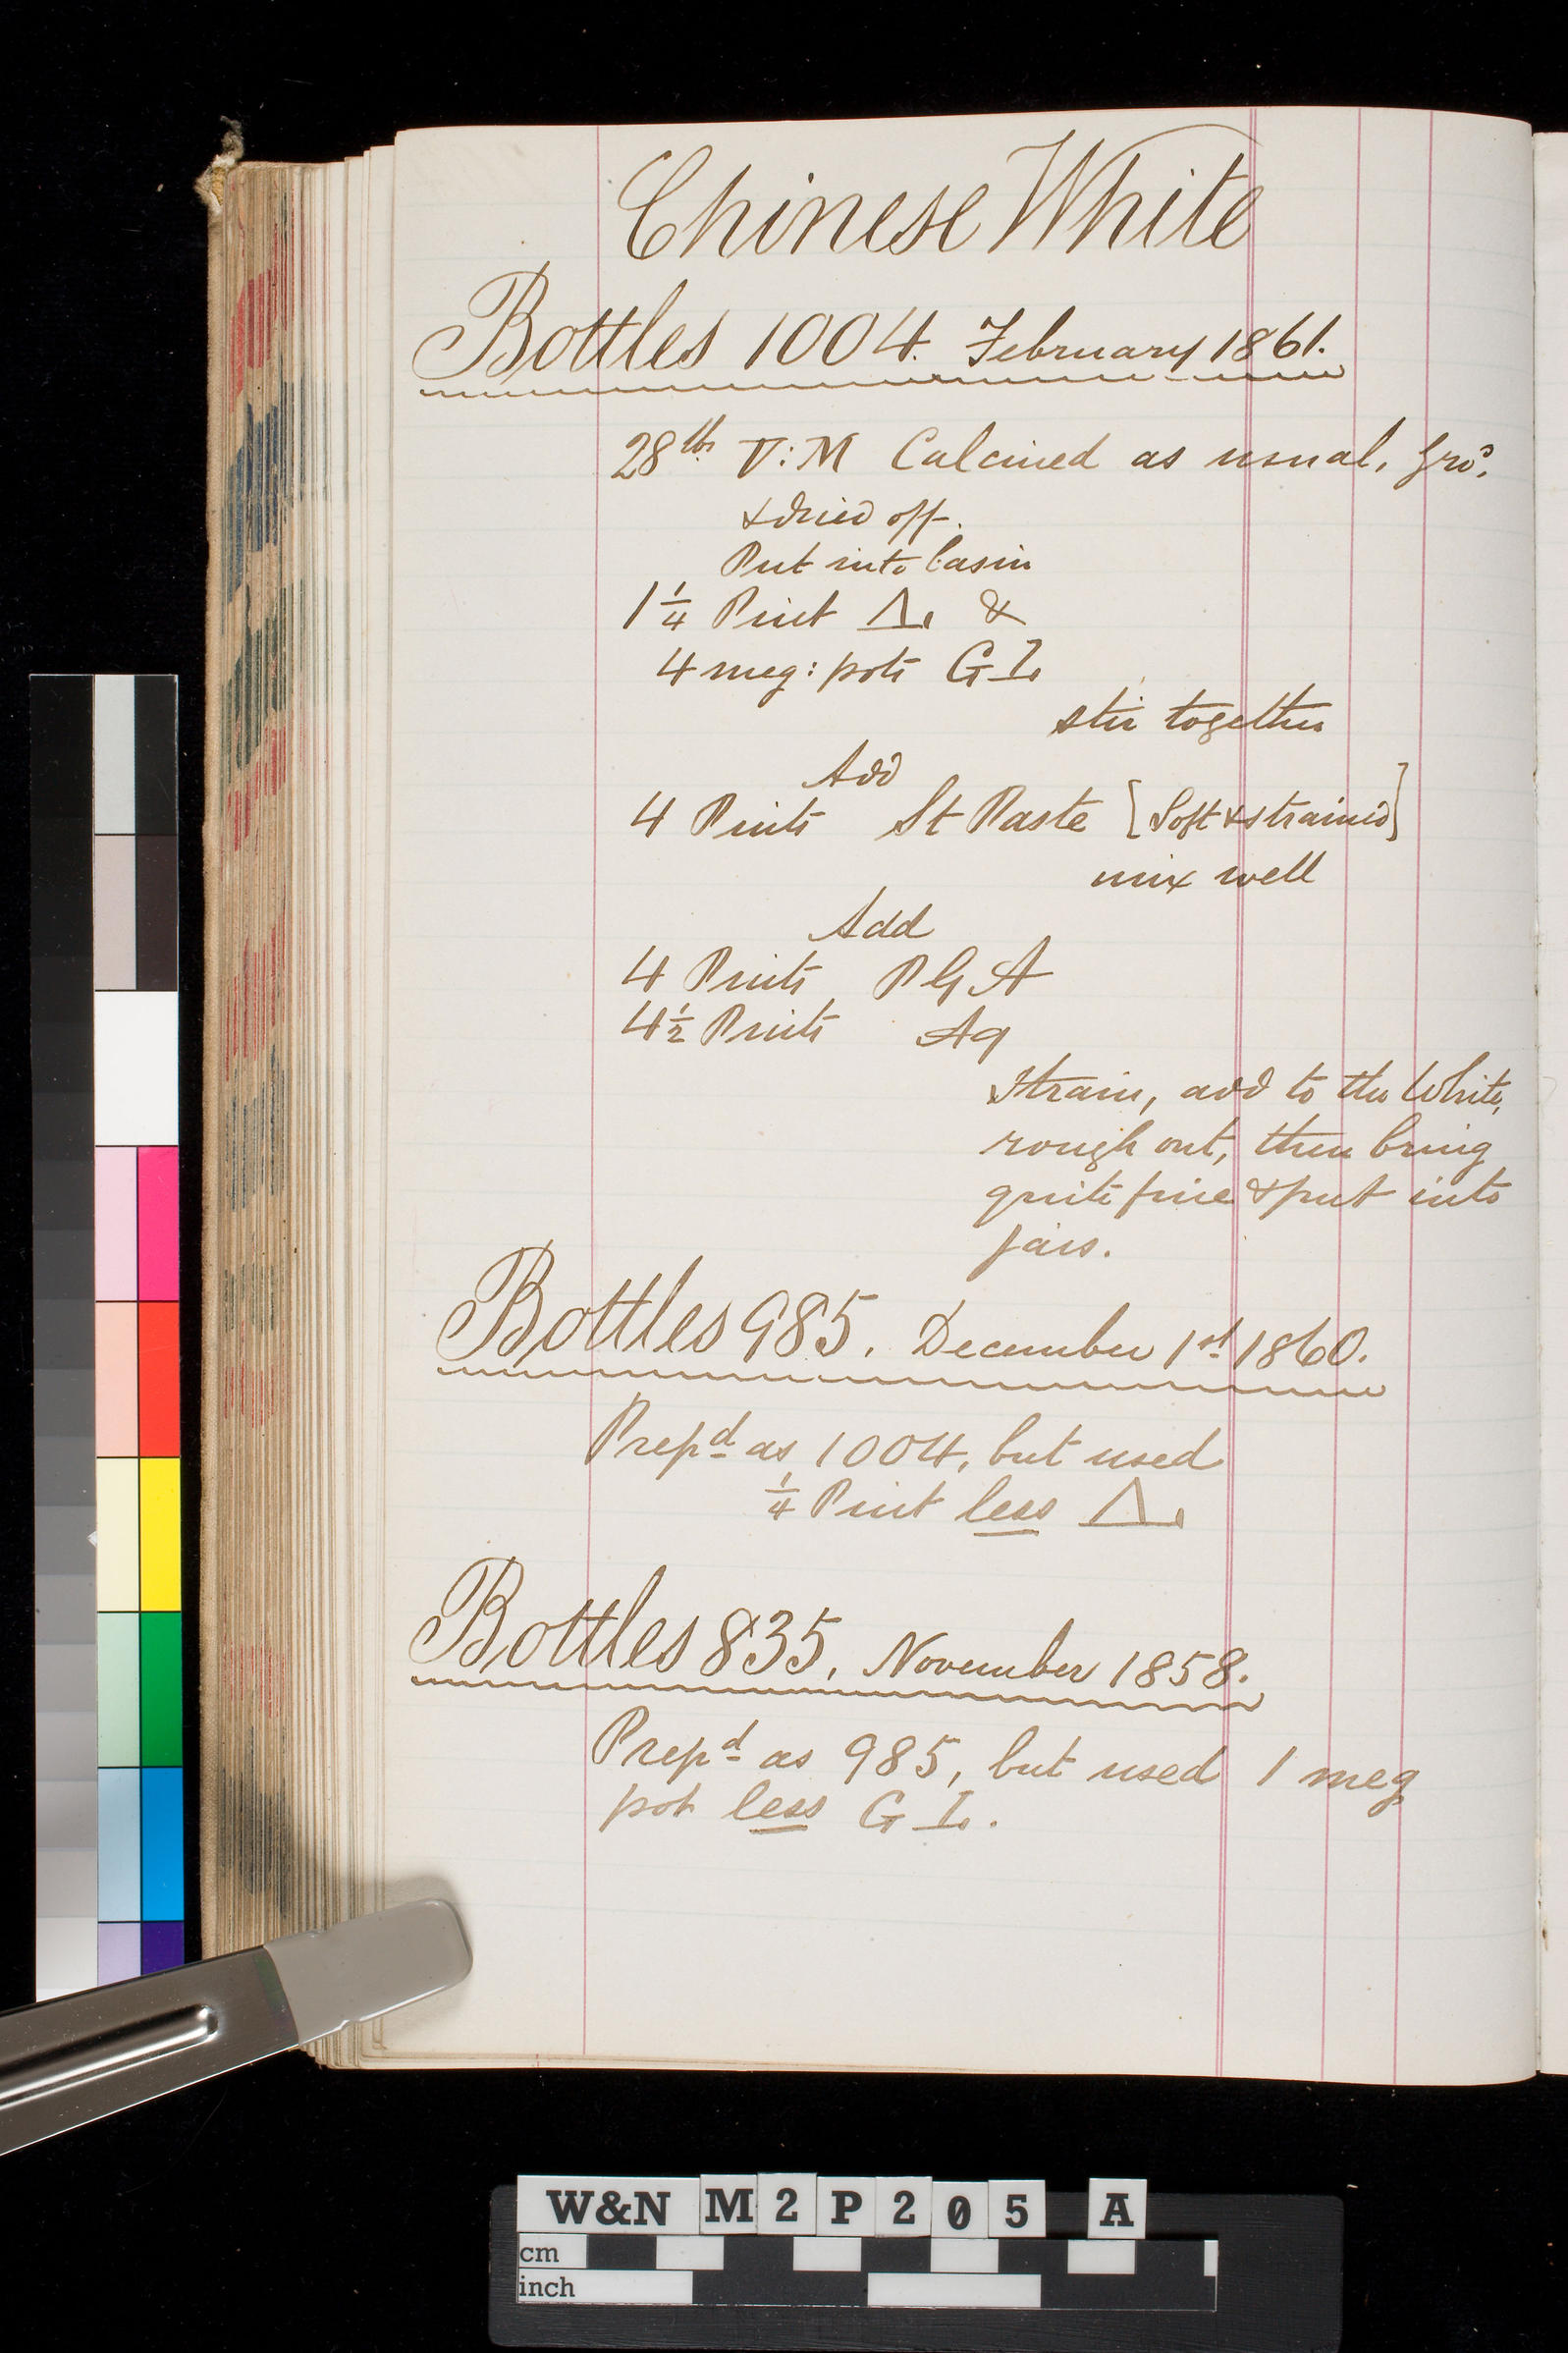 Chinese White
Bottles 1004. February 1861.
28 lbs V:M Calcined as usual, Grd.
& dried off.
Put into basin
1 1/4 Pint Λ. &
4 meg: pots G I.
stir together
Add
4 Pints St Paste [Soft & strained]
mix well
Add
4 Pints P G A
4 1/2 Pints Aq
Strain, add to the White,
rough out, then bring
quite fine & put into
jars.
Bottles 985. December 1st 1860.
Prepd as 1004, but used
1/4 Pint less Λ.
Bottles 835. November 1858.
Prepd as 985, but used 1 meg
pot less G I.
W&N M2P205 A
cm
inch